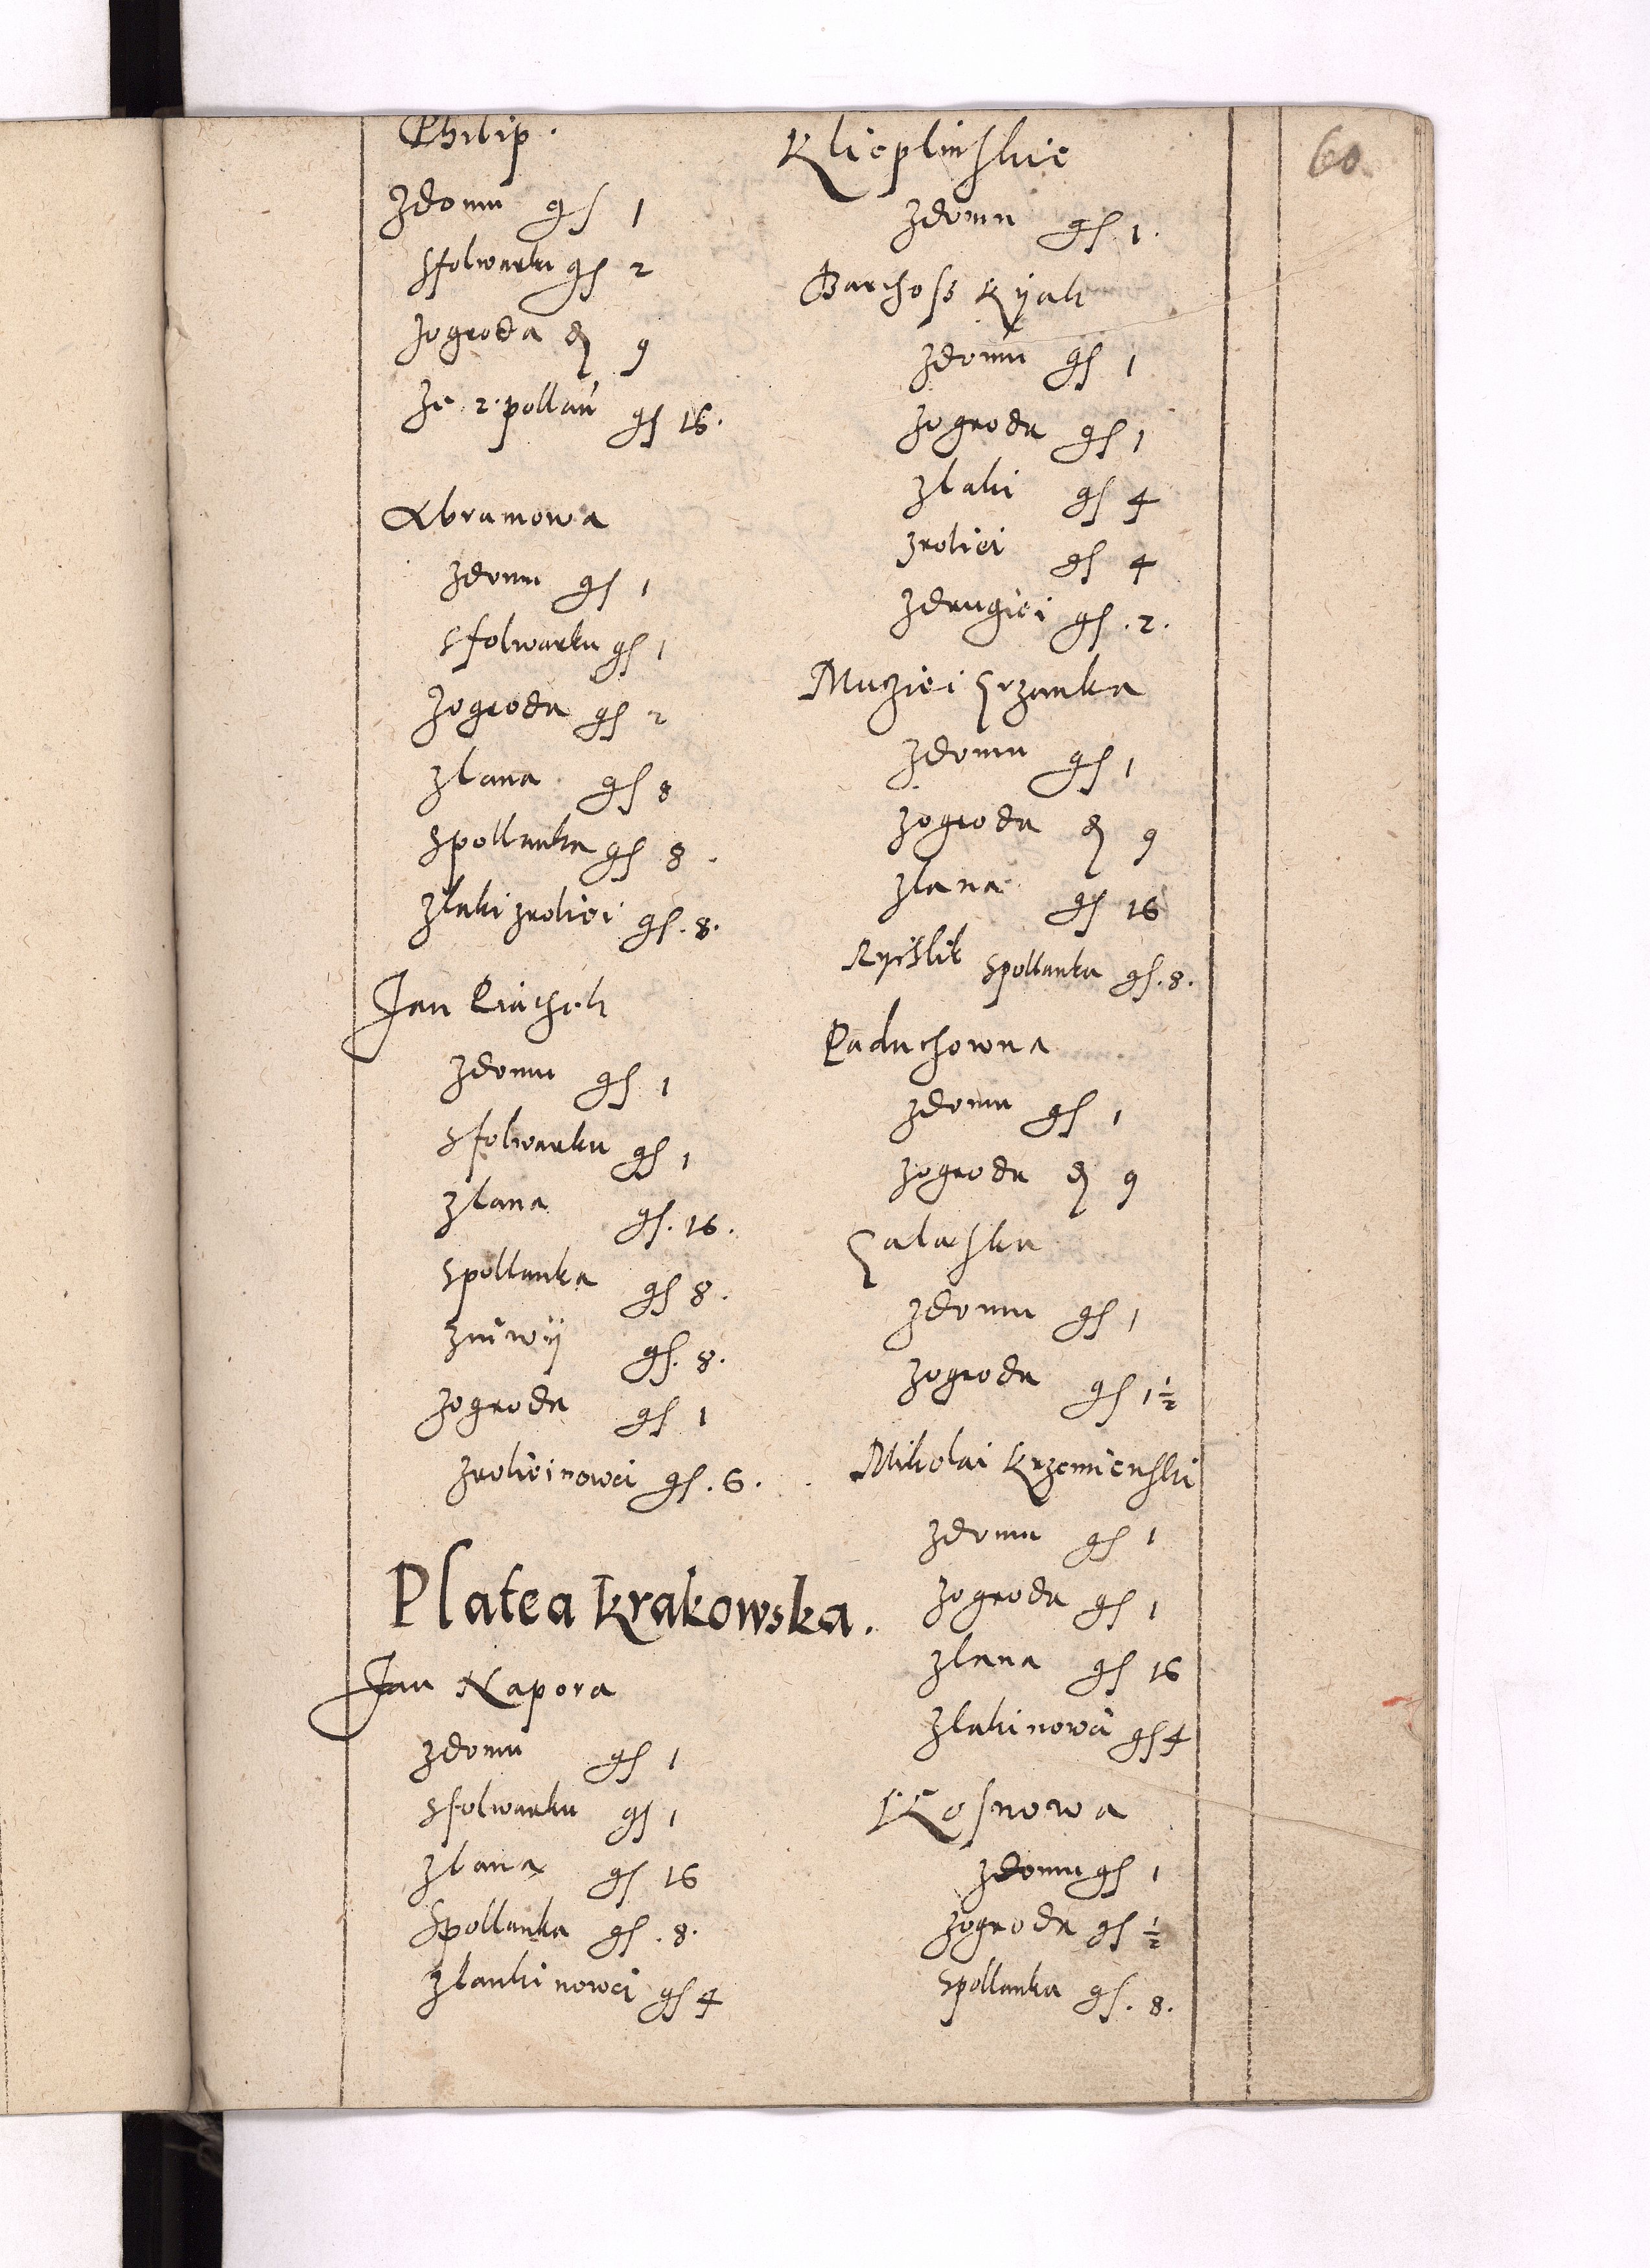 60
Philip.
Zdomu gs 1
Sfolwarku gs 2
Zogroda d 9
Ze 2 pollan gs 16.
Abramowa
Zdomu gs 1
Sfolwarku gs 1
Zogroda gs 2
Zlana gs 8
Spollanka gs 8.
Zlaki zroliei gs. 8.
Jan
Zdomu gs 1
Sfolwarku gs 1
Zlana gs. 16.
Spollanka gs 8.
Zniwy gs. 8.
Zogroda gs 1
Zroliei nowei gs. 6.
Platea Krakowska.
Jan Napora
Zdomu gs 1
Sfolwarku gs 1
Zlana gs 16
Spollanka gs. 8.
Zlanki nowei gs 4
Klieplinskie
Zdomu gs. 1.
Barthoss Kyak
Zdomu gs 1
Zogroda gs 1
Zlaki gs 4
Zroliei gs 4
Zdrugiei gs. 2.
Maziei Srzanka
Zdomu gs 1
Zogroda d 9
Zlana gs 16
Spollanka gs. 8.
Paduchowna
Zdomu gs 1
Zogroda d 9
Zdomu gs 1
Zogroda gs 1½
Mikolai Krzemienski
Zdomu gs 1
Zogroda gs 1
Zlana gs 16
Zlaki nowei gs 4
Kosnowa
Zdomu gs 1
Zogroda gs ½
Spollanka gs. 8.